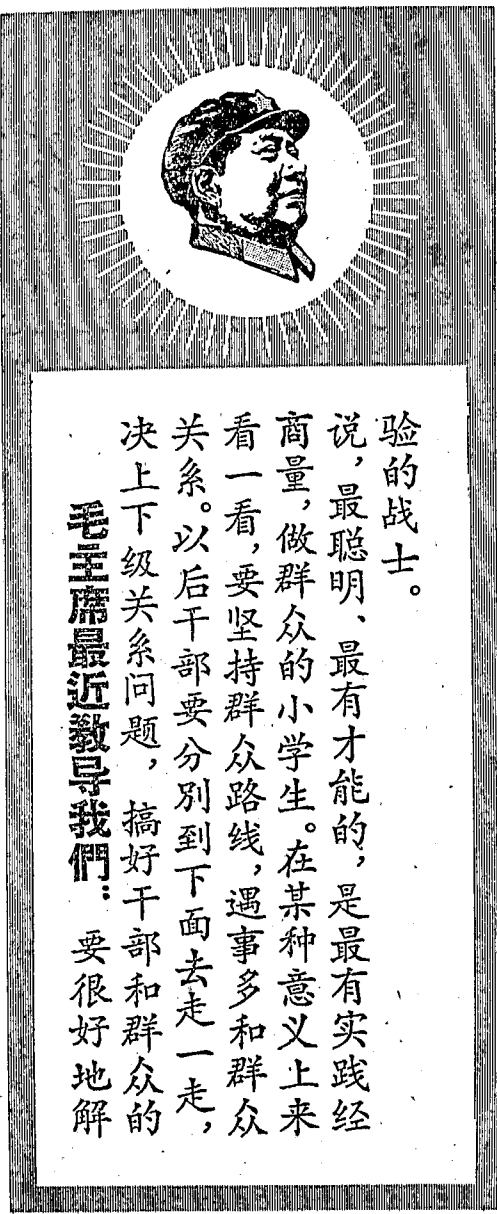 毛主席最近教导我們：要很好地解
决上下级关系问题，搞好干部和群众的
关系。以后干部要分别到下面去走一走，
看一看，要坚持群众路线，遇事多和群众
商量，做群众的小学生。在某种意义上来
说，最聪明、最有才能的，是最有实践经
验的战士。